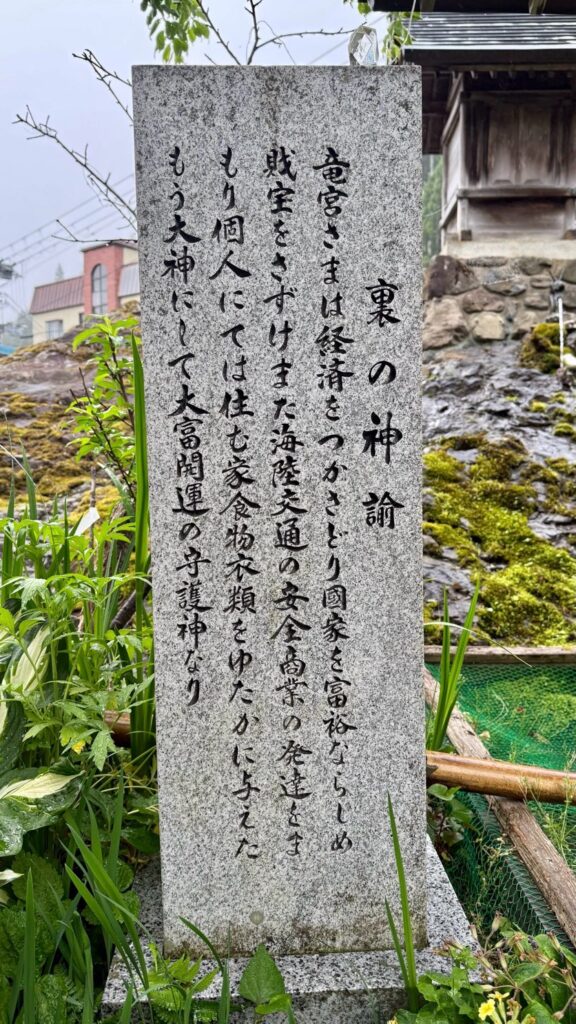 裏の神諭
竜宮さまは経済をつかさどり國家を富裕ならしめ
財宝をさずけまた海陸交通の安全商業の発達をま
もり個人にては住む家食物衣類をゆたかに与えた
もう大神にして大富開運の守護神なり